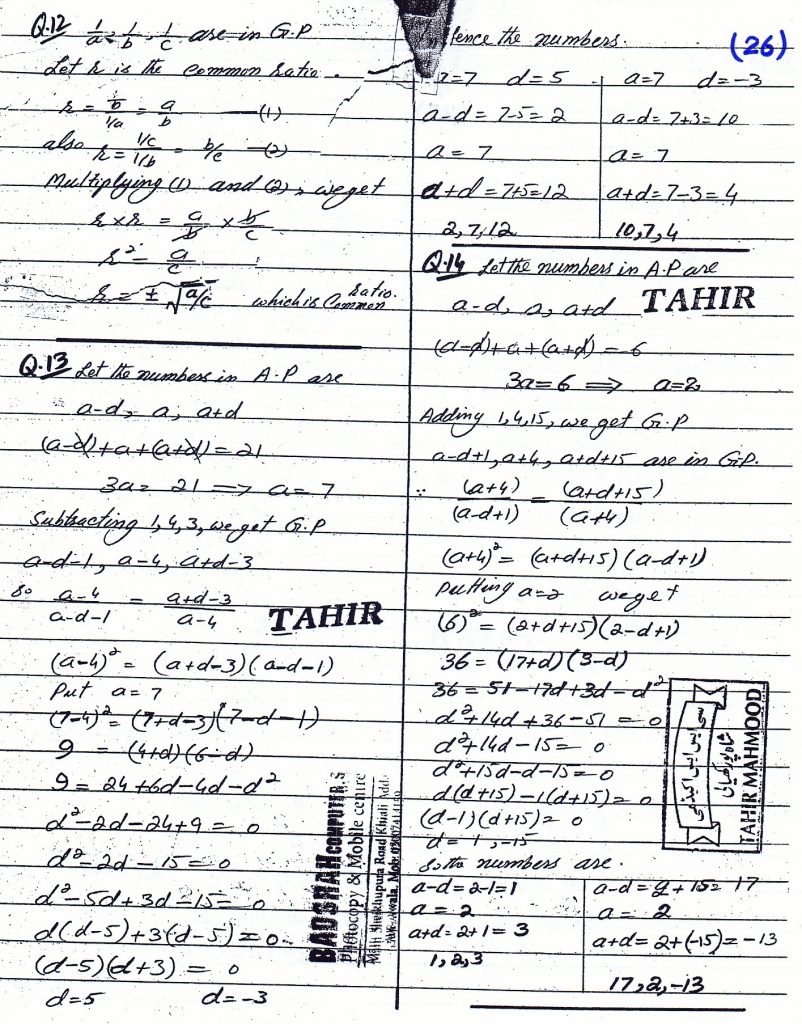 Q.12 1/a, 1/b, 1/c are in G.P
Let r is the common ratio.
r = (1/b)/(1/a) = a/b —(1)
also r = (1/c)/(1/b) = b/c —(2)
Multiplying (1) and (2), we get
r × r = a/b × b/c
r² = a/c
r = ± √a/c which is Common ratio.
Q.13 Let the numbers in A.P are
a-d, a, a+d
(a-d)+a+(a+d) = 21
3a = 21 ⇒ a = 7
Subtracting 1,4,3, we get G.P
a-d-1, a-4, a+d-3
So (a-4)/(a-d-1) = (a+d-3)/(a-4)
TAHIR
(a-4)² = (a+d-3)(a-d-1)
Put a = 7
(7-4)² = (7+d-3)(7-d-1)
9 = (4+d)(6-d)
9 = 24+6d-4d-d²
d²-2d-24+9 = 0
d²-2d-15 = 0
d²-5d+3d-15 = 0
d(d-5)+3(d-5) = 0
(d-5)(d+3) = 0
d=5 d=-3
BADSHAH COMPUTER,S
Photocopy & Mobile centre
Sheikhupura Road Khiali
(26)
Hence the numbers.
a=7 d=5
a-d = 7-5 = 2
a = 7
a+d = 7+5 = 12
2, 7, 12
a=7 d=-3
a-d = 7+3 = 10
a = 7
a+d = 7-3 = 4
10, 7, 4
Q.14 Let the numbers in A.P are
a-d, a, a+d
TAHIR
(a-d)+a+(a+d) = 6
3a = 6 ⇒ a = 2
Adding 1,4,15, we get G.P
a-d+1, a+4, a+d+15 are in G.P.
∵ (a+4)/(a-d+1) = (a+d+15)/(a+4)
(a+4)² = (a+d+15)(a-d+1)
Putting a=2 we get
(6)² = (2+d+15)(2-d+1)
36 = (17+d)(3-d)
36 = 51-17d+3d-d²
d²+14d+36-51 = 0
d²+14d-15 = 0
d²+15d-d-15 = 0
d(d+15)-1(d+15) = 0
(d-1)(d+15) = 0
d = 1, -15
So the numbers are.
a-d = 2-1 = 1
a = 2
a+d = 2+1 = 3
1, 2, 3
a-d = 2+15 = 17
a = 2
a+d = 2+(-15) = -13
17, 2, -13
TAHIR MAHMOOD